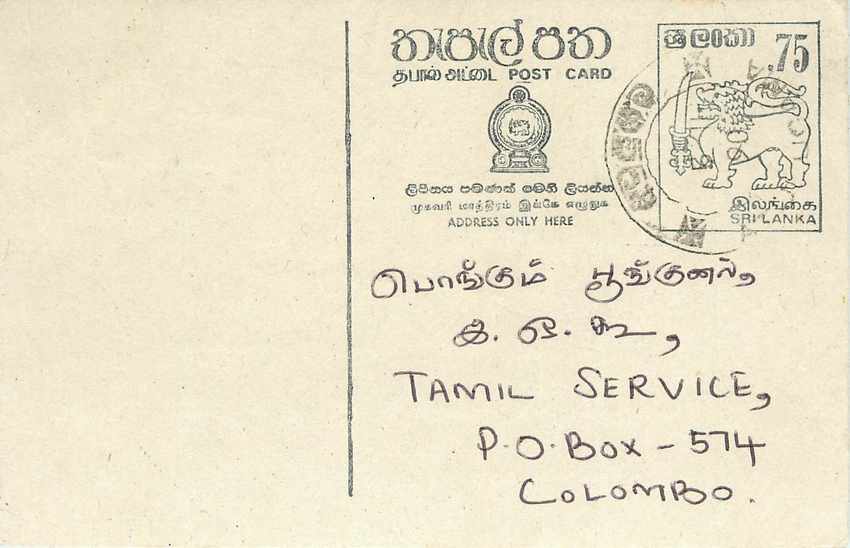 තැපැල් පත
தபால் அட்டை POST CARD
ලිපිනය පමණක් මෙහි ලියන්න
முகவரி மாத்திரம் இங்கே எழுதுக
ADDRESS ONLY HERE
ශ්‍රී ලංකා .75
இலங்கை
SRI LANKA
பொங்கும் பூங்குனல்,
இ. ஒ. கூ,
TAMIL SERVICE,
P.O.Box - 574
COLOMBO.